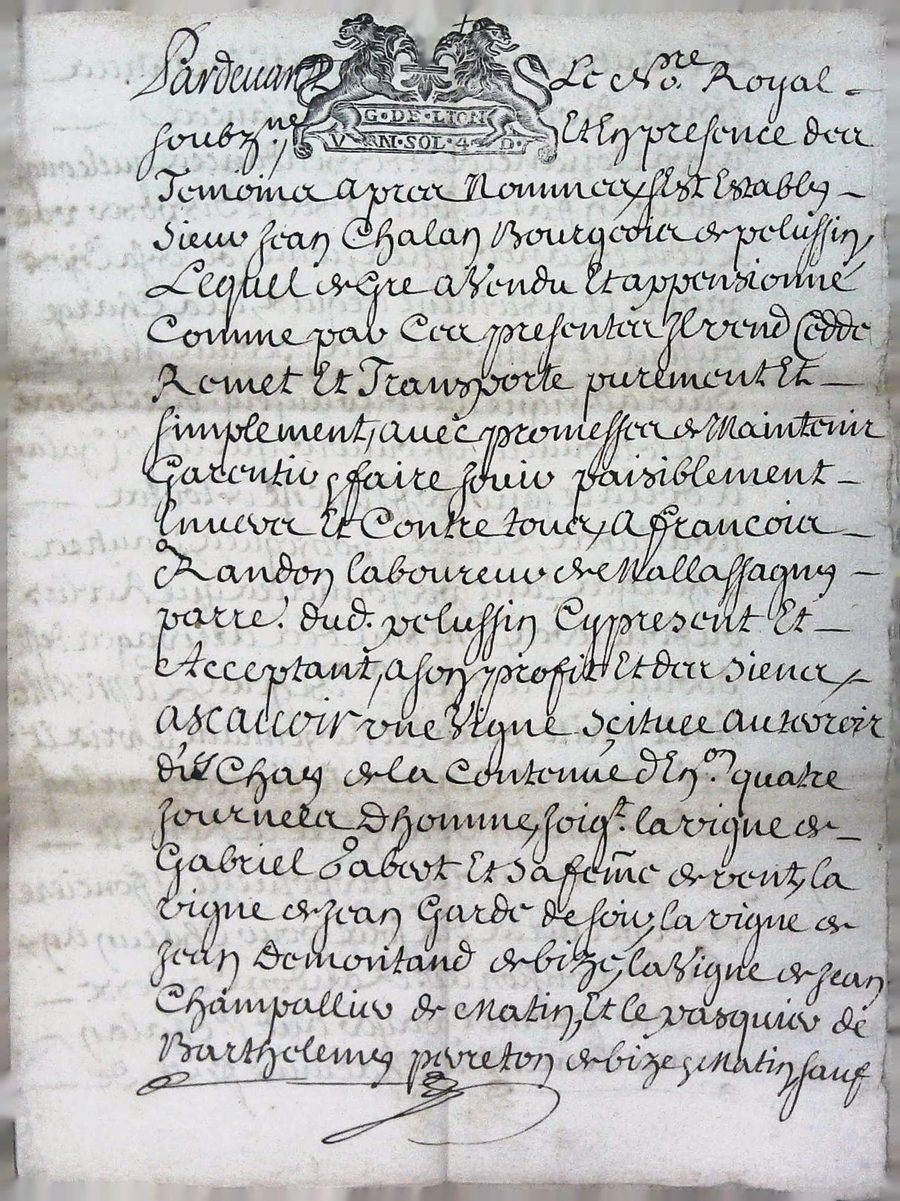 Pardevant Le No.re Royal
G·DE·LION
VN·SOL·4·D·
soubz.ne Et En presence des
Temoins apres Nommes, s'Est Estably
Sieur Jean Chalan Bourgeois de pelussin,
Lequel de Gre a Vendu Et appensionné
Comme par Ces presentes Il vend Cedde
Remet Et Transporte purement Et
simplement, avec promesses de Maintenir
Garentir & faire Jouir paisiblement
Envers Et Contre tous, a francois
Randon laboureur de Mallassagny
parre. dud. pelussin Cy present Et
Acceptant, a son profit Et des siens,
ascavoir une Vigne scituee au terroir
dit Chay de la Contenue d'En.on quatre
Journees D'homme, joig.t la vigne de
Gabriel Jabert Et sa feme de vent, la
vigne de Jean Garde de soir, la vigne de
Jean Demontand de bize, la Vigne de Jean
Champallier de Matin, Et le pasquier de
Barthelemy peyreton de bize & Matin, sauf